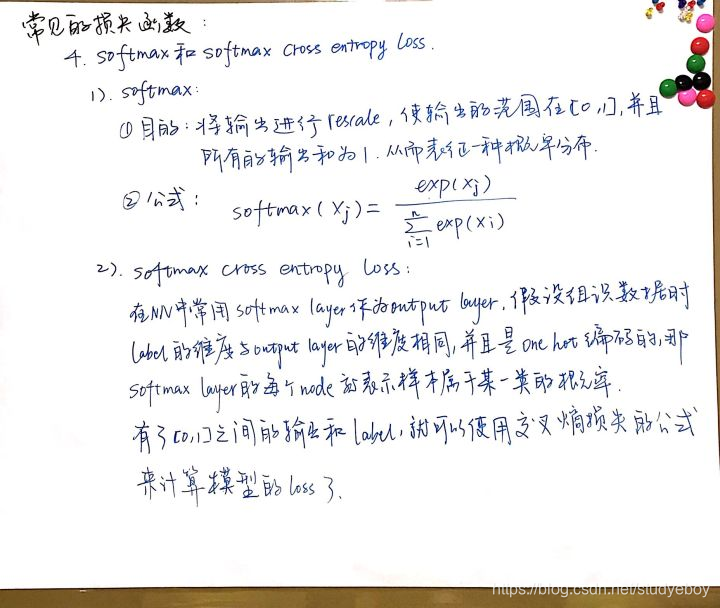 常见的损失函数:
4. softmax和softmax cross entropy loss.
1). softmax:
① 目的: 将输出进行rescale, 使输出的范围在[0,1], 并且
所有的输出和为1. 从而表征一种概率分布.
② 公式: softmax(xj) = exp(xj) / ∑_{i=1}^{n} exp(xi)
2). softmax cross entropy loss:
在NN中常用softmax layer作为output layer. 假设组识数据时
label的维度与output layer的维度相同, 并且是one hot编码的, 那
softmax layer的每个node就表示样本属于某一类的概率.
有了[0,1]之间的输出和label, 就可以使用交叉熵损失的公式
来计算模型的loss了.
https://blog.csdn.net/studyeboy